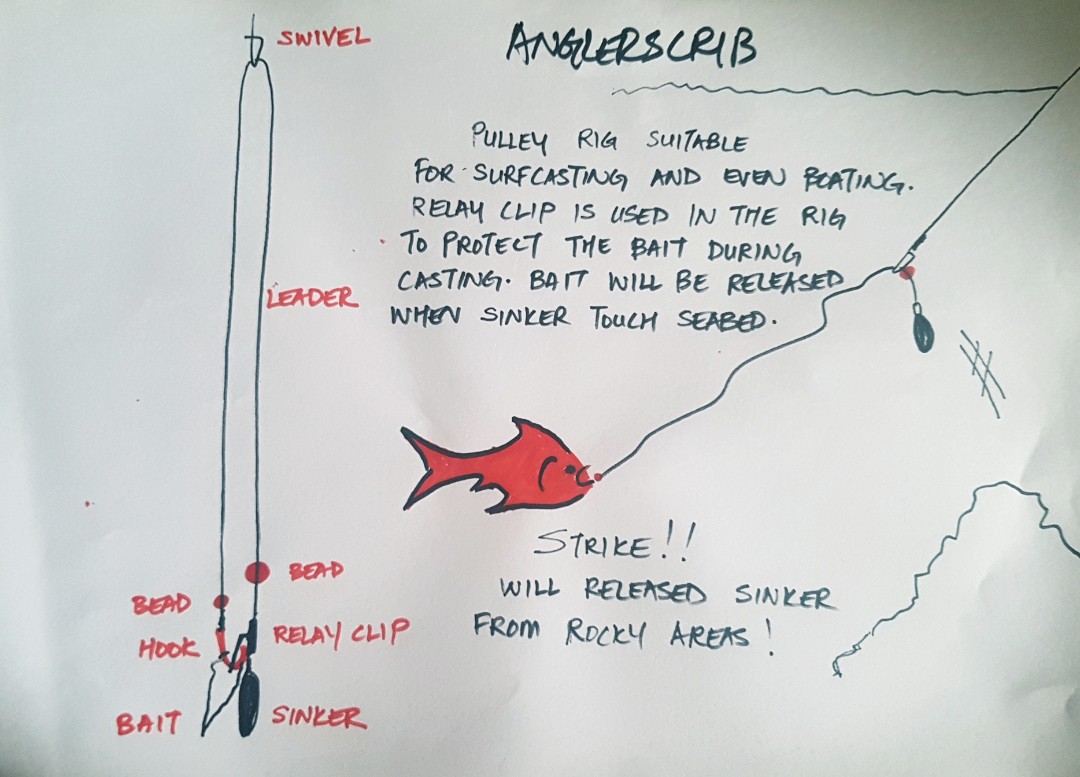 SWIVEL
ANGLERSCRIB
PULLEY RIG SUITABLE
FOR SURFCASTING AND EVEN BOATING.
RELAY CLIP IS USED IN THE RIG
TO PROTECT THE BAIT DURING
CASTING. BAIT WILL BE RELEASED
WHEN SINKER TOUCH SEABED.
LEADER
STRIKE!!
WILL RELEASED SINKER
FROM ROCKY AREAS!
BEAD
BEAD
HOOK
RELAY CLIP
BAIT
SINKER